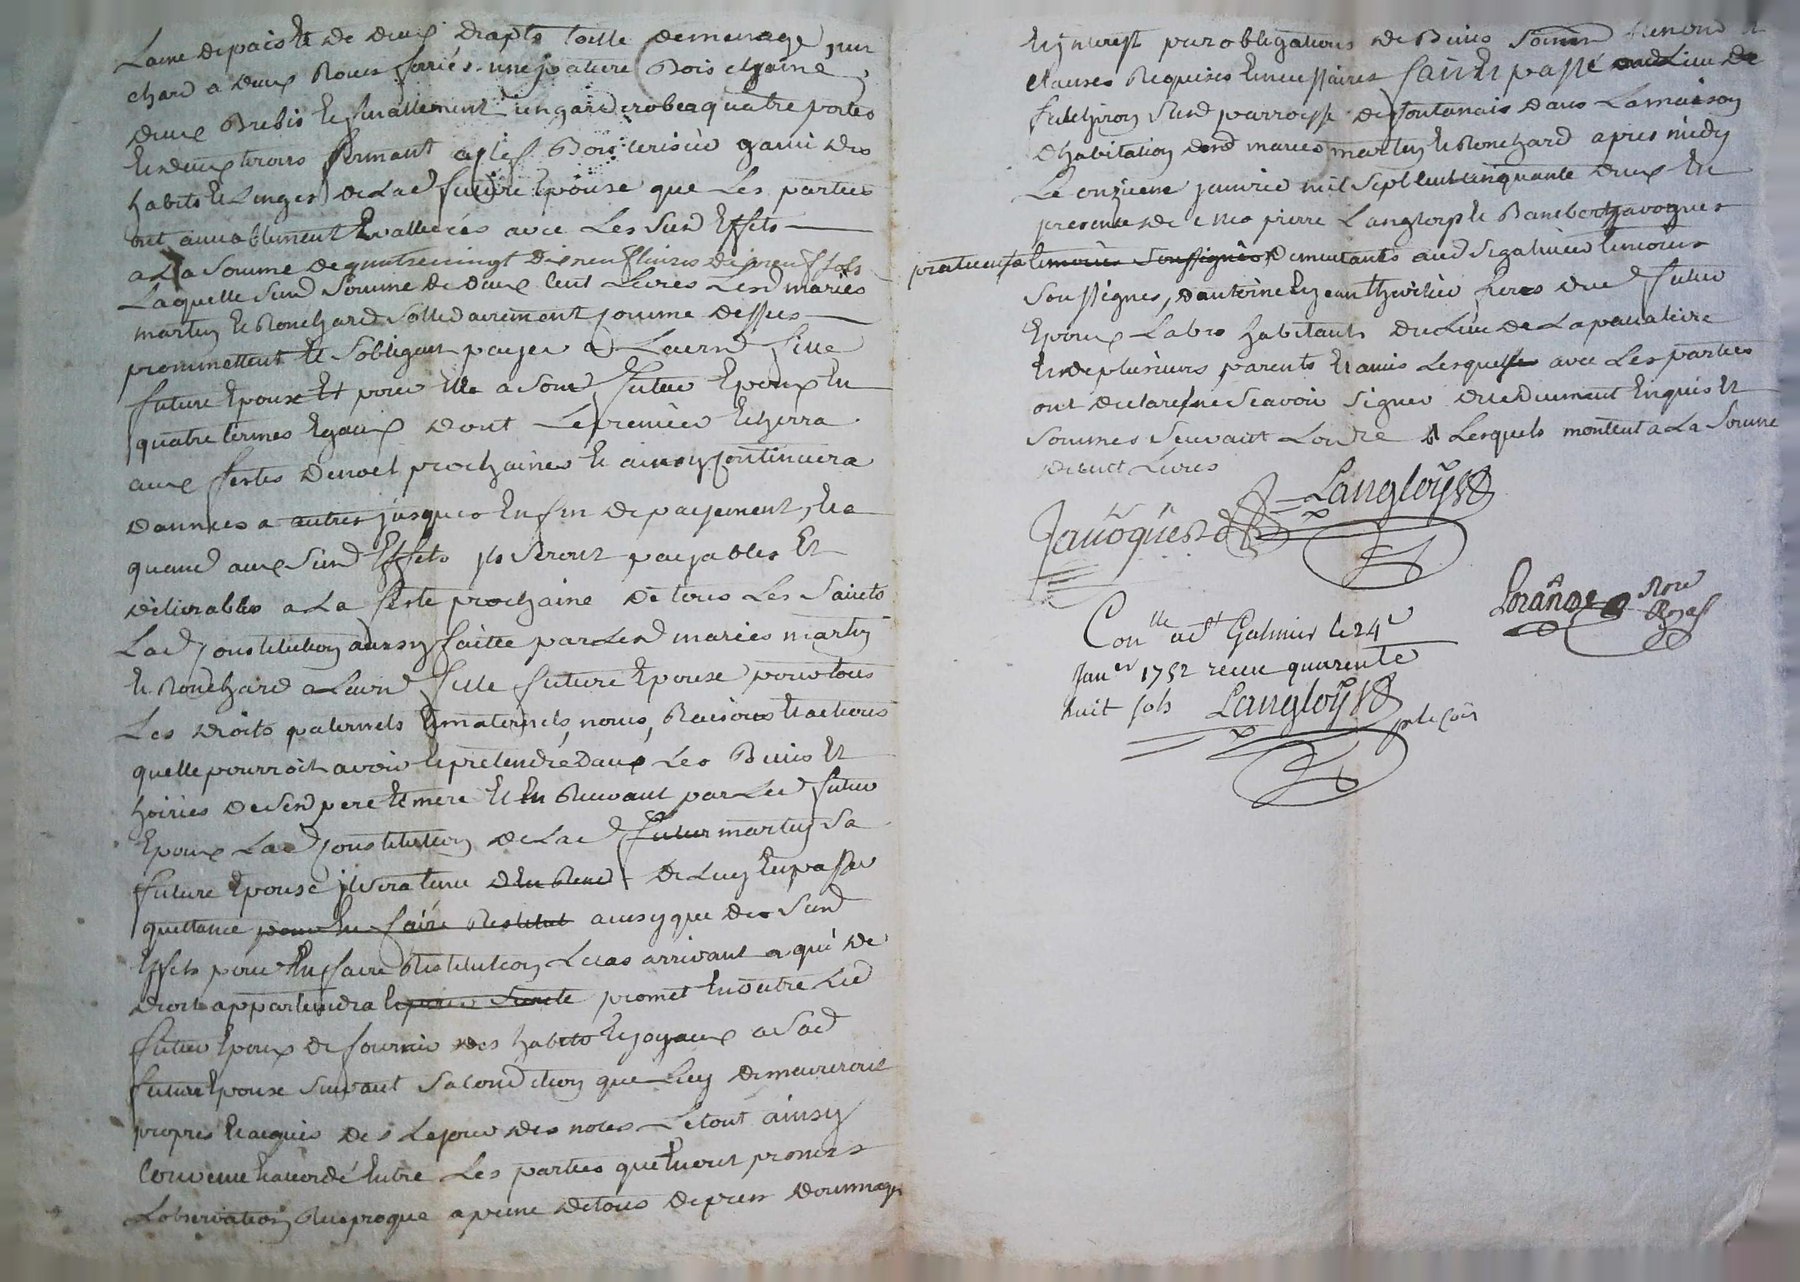 Laine depais et de deux draps toille demenage, un
chard a deux Roues ferrées une patiere Bois chaine,
deux Brebis et finallement un garderobe a quatre portes
et deux tiroirs fermant a clef Bois cerisier garni des
habits et Linges de Lad future Epouse que Les parties
ont aimablement Evalluées avec Les Susd Effets
a La Somme de quatrevingt dixneuf livres dixneuf sols
Laquelle Susd Somme de deux Cent Livres Lesd mariés
martin et Ronchard Sollidairement comme dessus
promettent et Sobligent payer a Leurd fille
future Epouse Et pour Elle a Sond futur Epoux En
quatre termes Egaux dont Le premier Echerra
aux festes denoel prochaines et ainsy Continuera
dannées a autres jusques En fin de payement, Et a
quand aux Susd Effets ils Seront payables Et
délivrables a La feste prochaine de tous Les Saints
Lad Constitution ainsy faitte par Lesd mariés martin
et Ronchard a Leurd fille future Epouse pour tous
Les droits paternels Et maternels, noms, Raisons et actions
quelle pourroit avoir et prétendre dans Les Biens Et
hoiries de Sesd pere Et mere Et En Recevant par Led futur
Epoux Lad Constitution de Lad futur martin Sa
future Epouse il Sera tenu d'En Rend de Luy En passer
quittance pour En faire Restitut ainsy que des Susd
Effets pour En faire Restitution Le cas arrivant a qui de
droit appartiendra promet En outre Led
futur Epoux de fournir des habits Et joyaux a Sad
future Epouse Suivant Sa Condition que Luy demeureront
propres Et acquis des Le jour des noces Le tout ainsy
Convenu Et accordé Entre Les parties quEn ont promis
Lobservation Reciproque a peine de tous depens dommages
Et interest par obligations de Biens Soumis Renond Et
Clauses Requises Et necessaires fait Et passé Lieu de
Susd parroisse de fontanais dans La maison
dhabitation desd mariés martin Et Ronchard apres midy
Le onzieme janvier mil Sept Cent Cinquante deux En
presence de Me pierre Langloys et Javogues
praticiens Et moins Soussignés demeurants aud St galmier temoins
Soussignés, dantoine Et jean freres dud futur
Epoux Labrs habitants du Lieu de La
Et de plusieurs parents Et amis Lesquels avec Les parties
ont declaré ne Scavoir Signer de ce duement Enquis Et
Sommés Suivant Lordre Lesquels montent a La Somme
de huit Livres
Langloys
Javogues
Con.lle a St Galmier le 24e
Janer 1752 receu quarente
huit sols Langloys
Notre
Royal